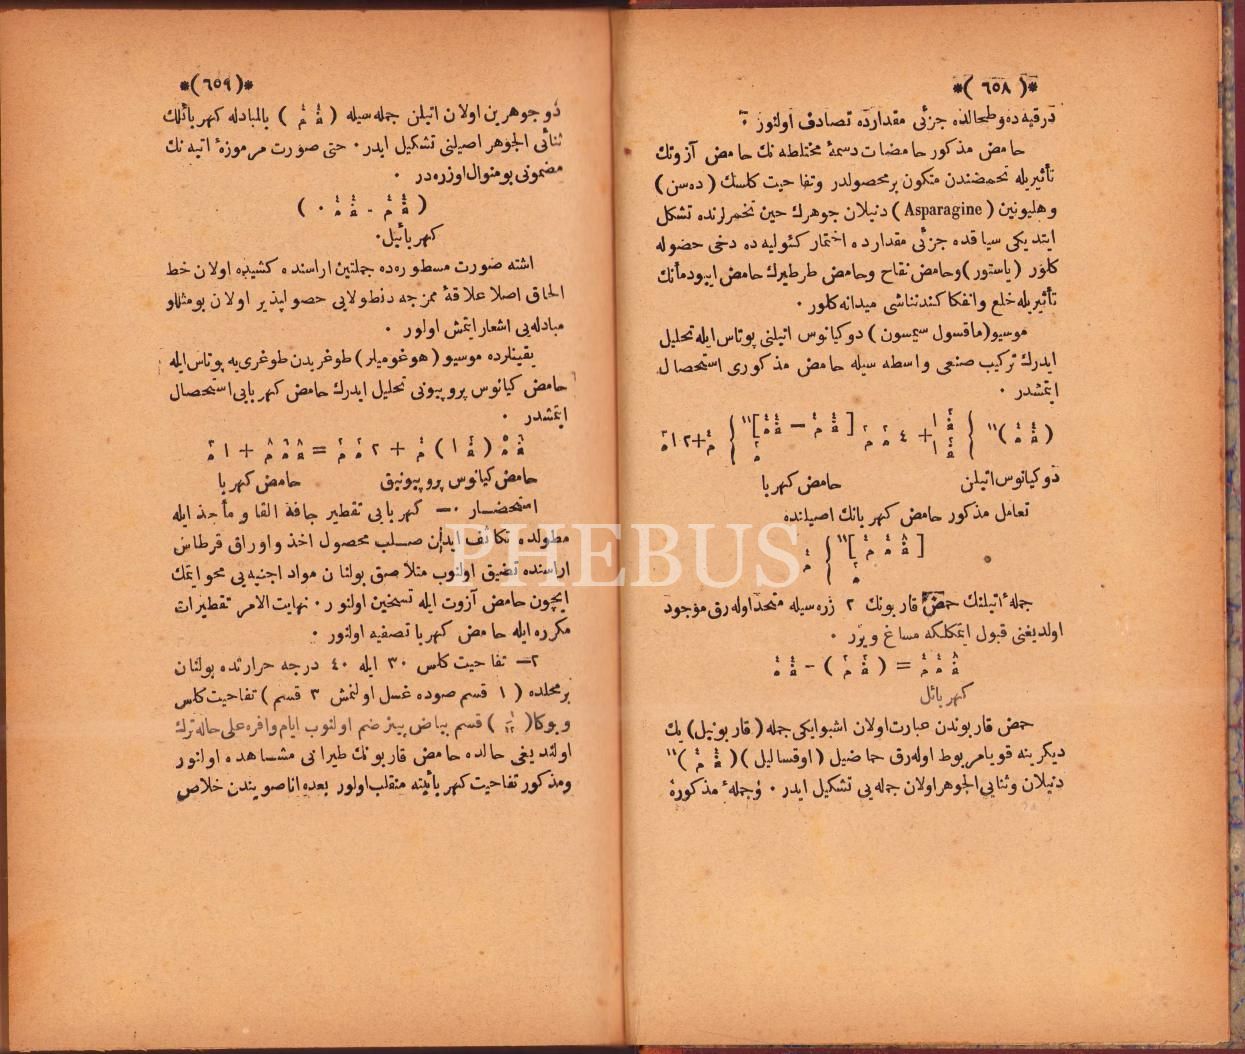 *( ٦٥٨ )*
درقيه ده وطحالده جزئی مقدارده تصادف اولنور .
حامض مذكور حامضات دسمۀ مختلطه نك حامض آزوتك
تأثيريله تحمضندن متكون بر محصولدر وتفاحيت كلسك (ده سن)
وهليونين ( Asparagine ) دنيلان جوهرك حين تخمرلرنده تشكل
ايتديكی سياقده جزئی مقدارده اختمار كئوليه ده دخی حضوله
كلور (پاستور) وحامض تفاح وحامض طرطيرك حامض ايبودمأنك
تأثيريله خلع وانفكا كندن ناشی ميدانه كلور .
موسيو (ماقسول سيمسون) دوكيانوس اتيلنی پوتاس ايله تحليل
ايدرك تركيب صنعی واسطه سيله حامض مذكوری استحصال
ايتمشدر .
دوكيانوس اتيلن حامض كهربا
تعامل مذكور حامض كهربانك اصيلنده
جملۀ اتيلنك حمض قاربونك ٢ زره سيله متحداً اوله رق موجود
اولديغنی قبول ايتمكلكه مساغ ويرر .
كهربائل
حمض قاربوندن عبارت اولان اشبو ايكی جمله ( قاربونيل) يك
ديكرينه قويا مربوط اوله رق حماضيل (اوقساليل)
دنيلان وثنايی الجوهر اولان جمله يی تشكيل ايدر . وجملۀ مذكوره
*( ٦٥٩ )*
ذو جوهرين اولان اتيلن جمله سيله بالمبادله كهربائلك
ثنائی الجوهر اصيلنی تشكيل ايدر . حتی صورت مرموزۀ اتيه نك
مضمونی بو منوال اوزره در .
كهربائيل .
اشته صورت مسطوره ده جملتين اراسنده كشيده اولان خط
الحاق اصلا علاقۀ ممزجه دن طولايی حصولپذير اولان بو مثللو
مبادله يی اشعار ايتمش اولور .
يقينلرده موسيو (هوغوميلر) طوغريدن طوغری يه پوتاس ايله
حامض كيانوس پروپيونی تحليل ايدرك حامض كهربايی استحصال
ايتمشدر .
حامض كيانوس پروپيونيق حامض كهربا
استحضار .— كهربايی تقطير جافه القا ومأخذ ايله
مطولده تكاثف ايدن صلب محصول اخذ و اوراق قرطاس
اراسنده تضيق اولنوب مثلا صق بولنان مواد اجنبيه يی محو ايتمك
ايچون حامض آزوت ايله تسخين اولنور . نهايت الامر تقطيرات
مكرره ايله حامض كهربا تصفيه اولنور .
٢— تفاحيت كلس ٣٠ ايله ٤٠ درجه حرارتده بولنان
بر محلده ( ١ قسم صوده غسل اولنمش ٣ قسم ) تفاحيت كلس
وبوكا ( ١/١٢ ) قسم بياض پينر ضم اولنوب ايام وافره علی حاله ترك
اولنديغی حالده حامض قاربونك طيرانی مشاهده اولنور
ومذكور تفاحيت كهربائيته منقلب اولور بعده انا صويندن خلاص
PHEBUS